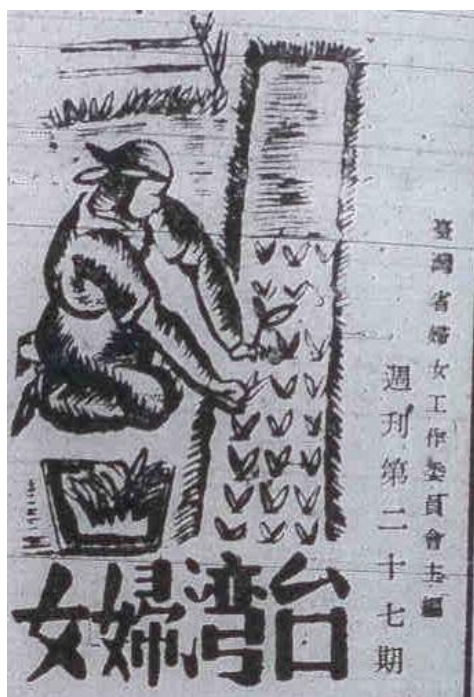 臺灣省婦女工作委員會主編
週刊第二十七期
台湾婦女